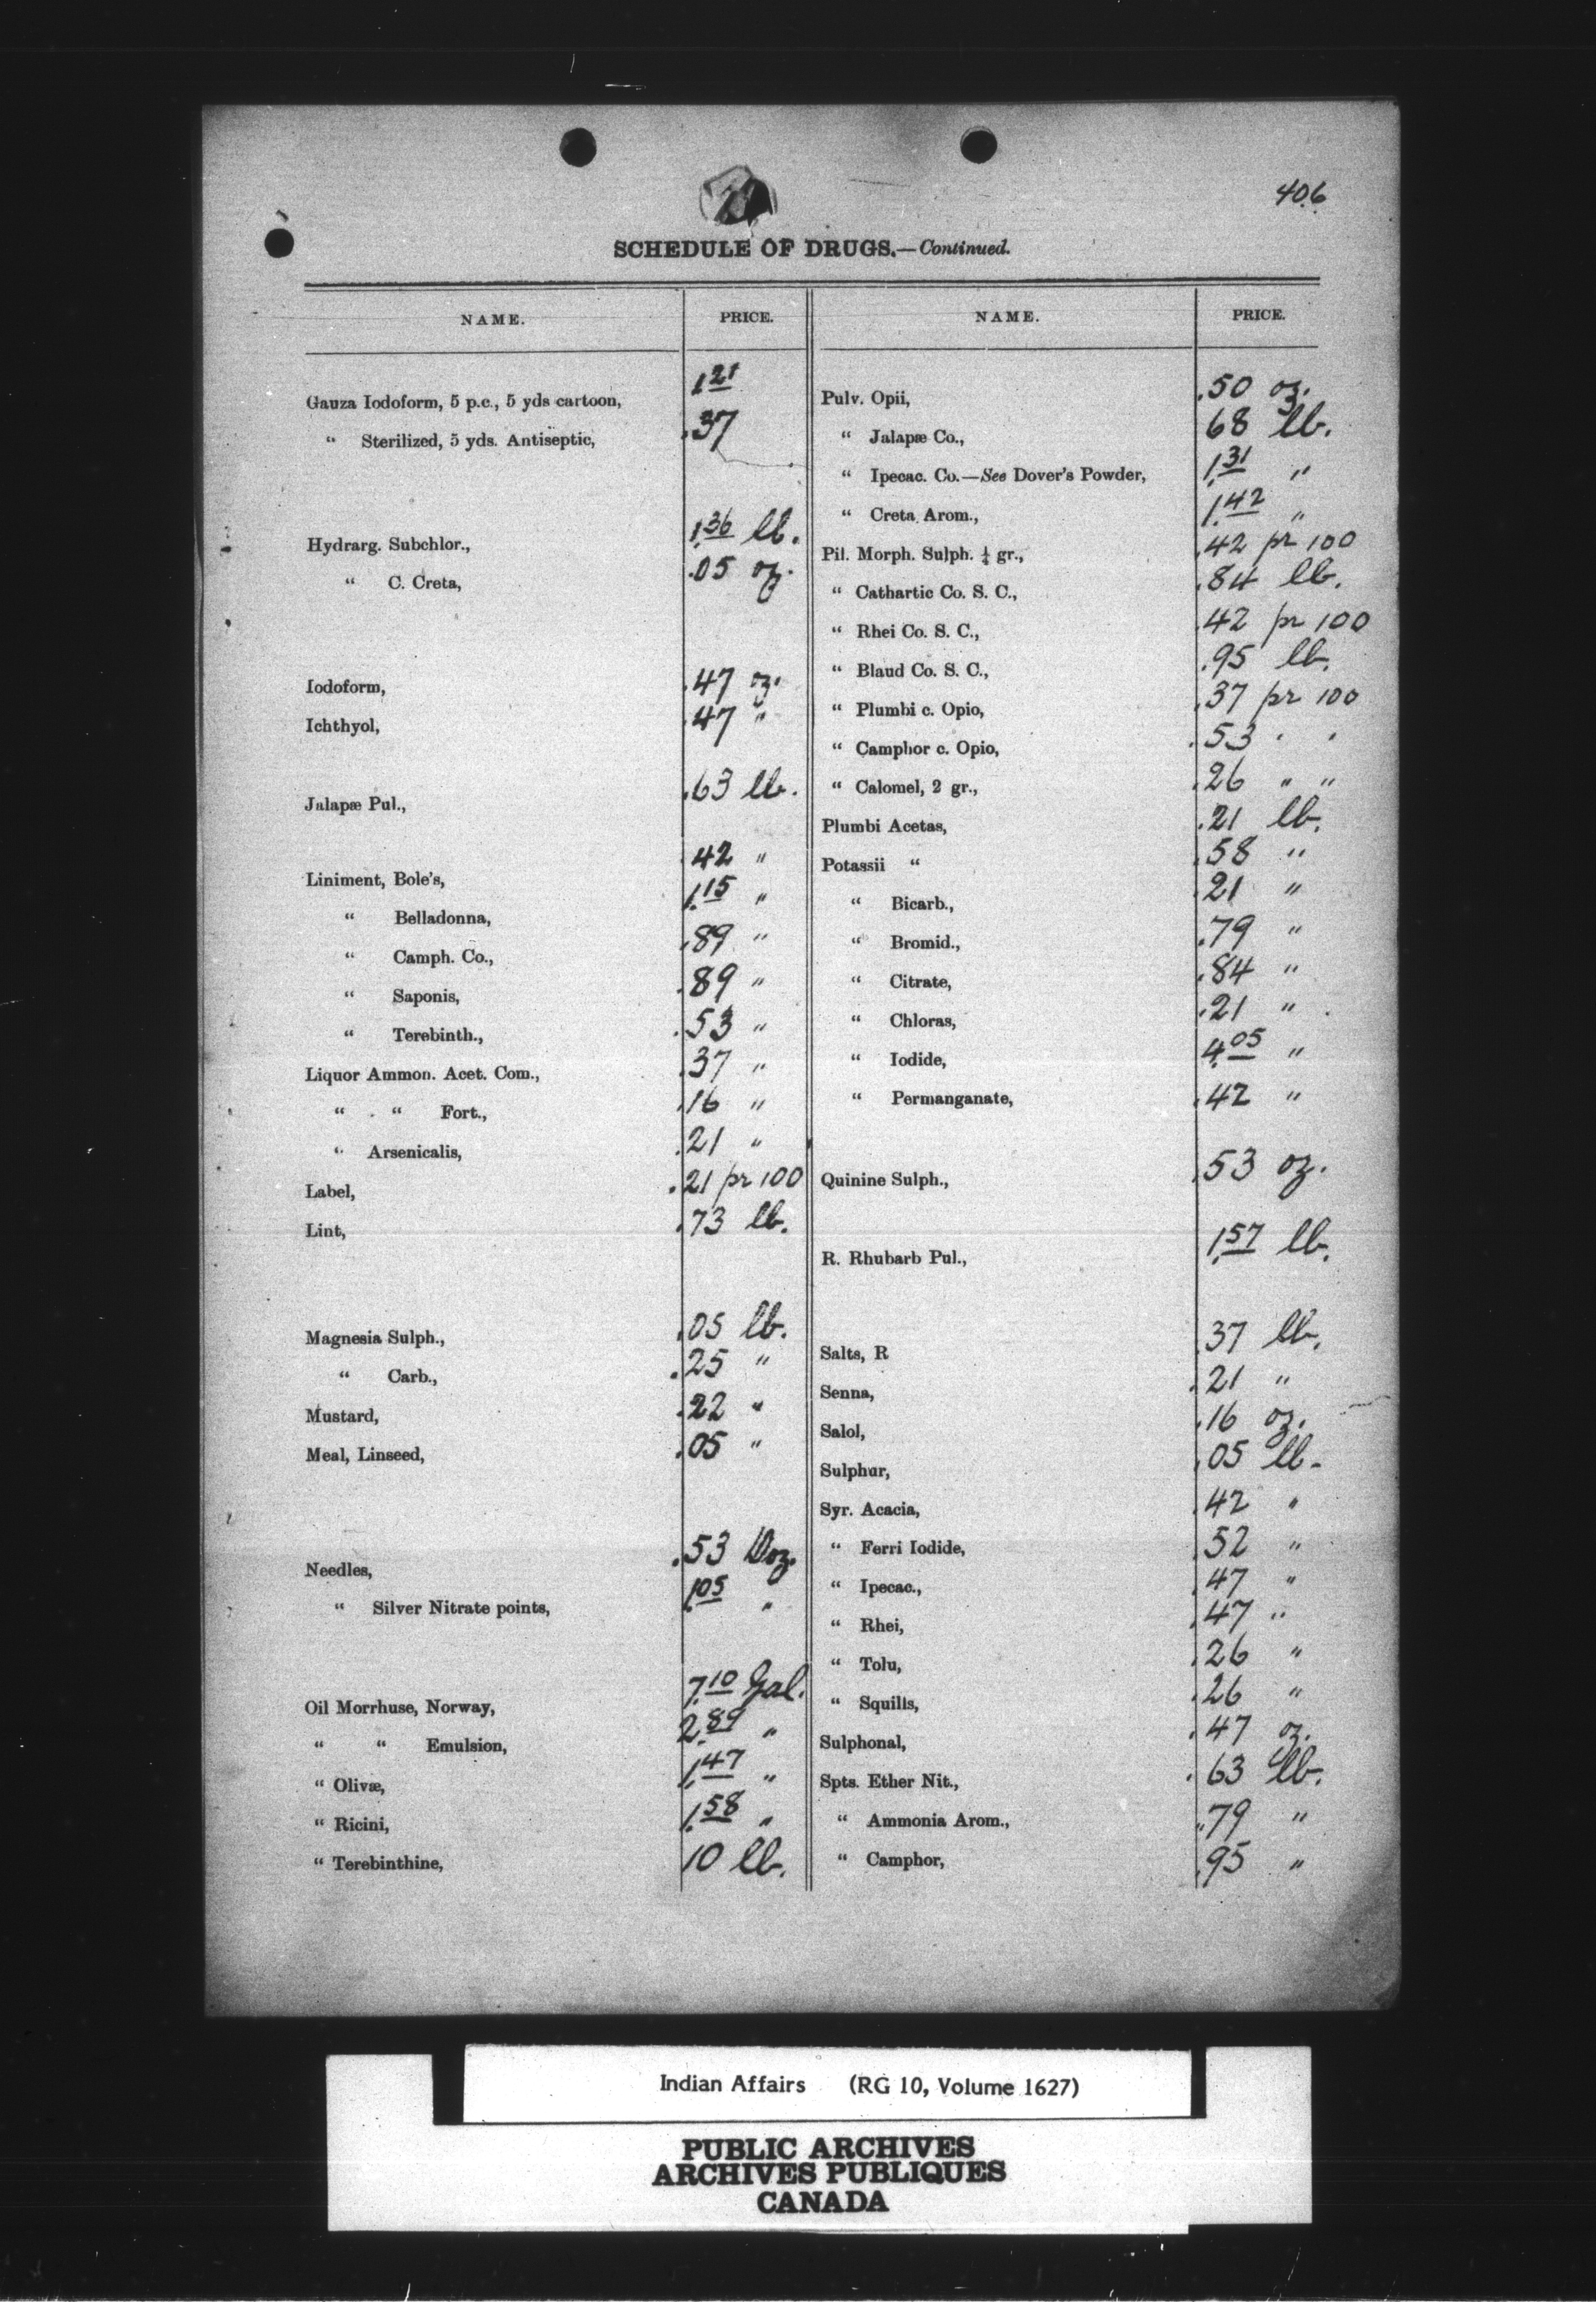 406
SCHEDULE OF DRUGS.—Continued.
NAME. PRICE.
Gauza Iodoform, 5 p.c., 5 yds cartoon, 1.21
“ Sterilized, 5 yds. Antiseptic, .37
Hydrarg. Subchlor., 1.36 lb.
“ C. Creta, .05 oz.
Iodoform, .47 oz.
Ichthyol, .47 "
Jalapæ Pul., .63 lb.
Liniment, Bole's, .42 "
“ Belladonna, 1.15 "
“ Camph. Co., .89 "
“ Saponis, .89 "
“ Terebinth., .53 "
Liquor Ammon. Acet. Com., .37 "
“ “ Fort., .16 "
“ Arsenicalis, .21 "
Label, .21 pr 100
Lint, .73 lb.
Magnesia Sulph., .05 lb.
“ Carb., .25 "
Mustard, .22 "
Meal, Linseed, .05 "
Needles, .53 Doz.
“ Silver Nitrate points, 1.05 "
Oil Morrhuse, Norway, 7.10 Gal.
“ “ Emulsion, 2.89 "
“ Olivæ, 1.47 "
“ Ricini, 1.58 "
“ Terebinthine, 10 lb.
NAME. PRICE.
Pulv. Opii, .50 oz.
“ Jalapæ Co., 68 lb.
“ Ipecac. Co.—See Dover's Powder, 1.31 "
“ Creta Arom., 1.42 "
Pil. Morph. Sulph. ¼ gr., .42 pr 100
“ Cathartic Co. S. C., .84 lb.
“ Rhei Co. S. C., .42 pr 100
“ Blaud Co. S. C., .95 lb.
“ Plumbi c. Opio, .37 pr 100
“ Camphor c. Opio, .53 " "
“ Calomel, 2 gr., .26 " "
Plumbi Acetas, .21 lb.
Potassii “ .58 "
“ Bicarb., .21 "
“ Bromid., .79 "
“ Citrate, .84 "
“ Chloras, .21 "
“ Iodide, 4.05 "
“ Permanganate, .42 "
Quinine Sulph., .53 oz.
R. Rhubarb Pul., 1.57 lb.
Salts, R .37 lb.
Senna, .21 "
Salol, .16 oz.
Sulphur, .05 lb.
Syr. Acacia, .42 "
“ Ferri Iodide, .52 "
“ Ipecac., .47 "
“ Rhei, .47 "
“ Tolu, .26 "
“ Squills, .26 "
Sulphonal, .47 oz.
Spts. Ether Nit., .63 lb.
“ Ammonia Arom., .79 "
“ Camphor, .95 "
Indian Affairs (RG 10, Volume 1627)
PUBLIC ARCHIVES
ARCHIVES PUBLIQUES
CANADA